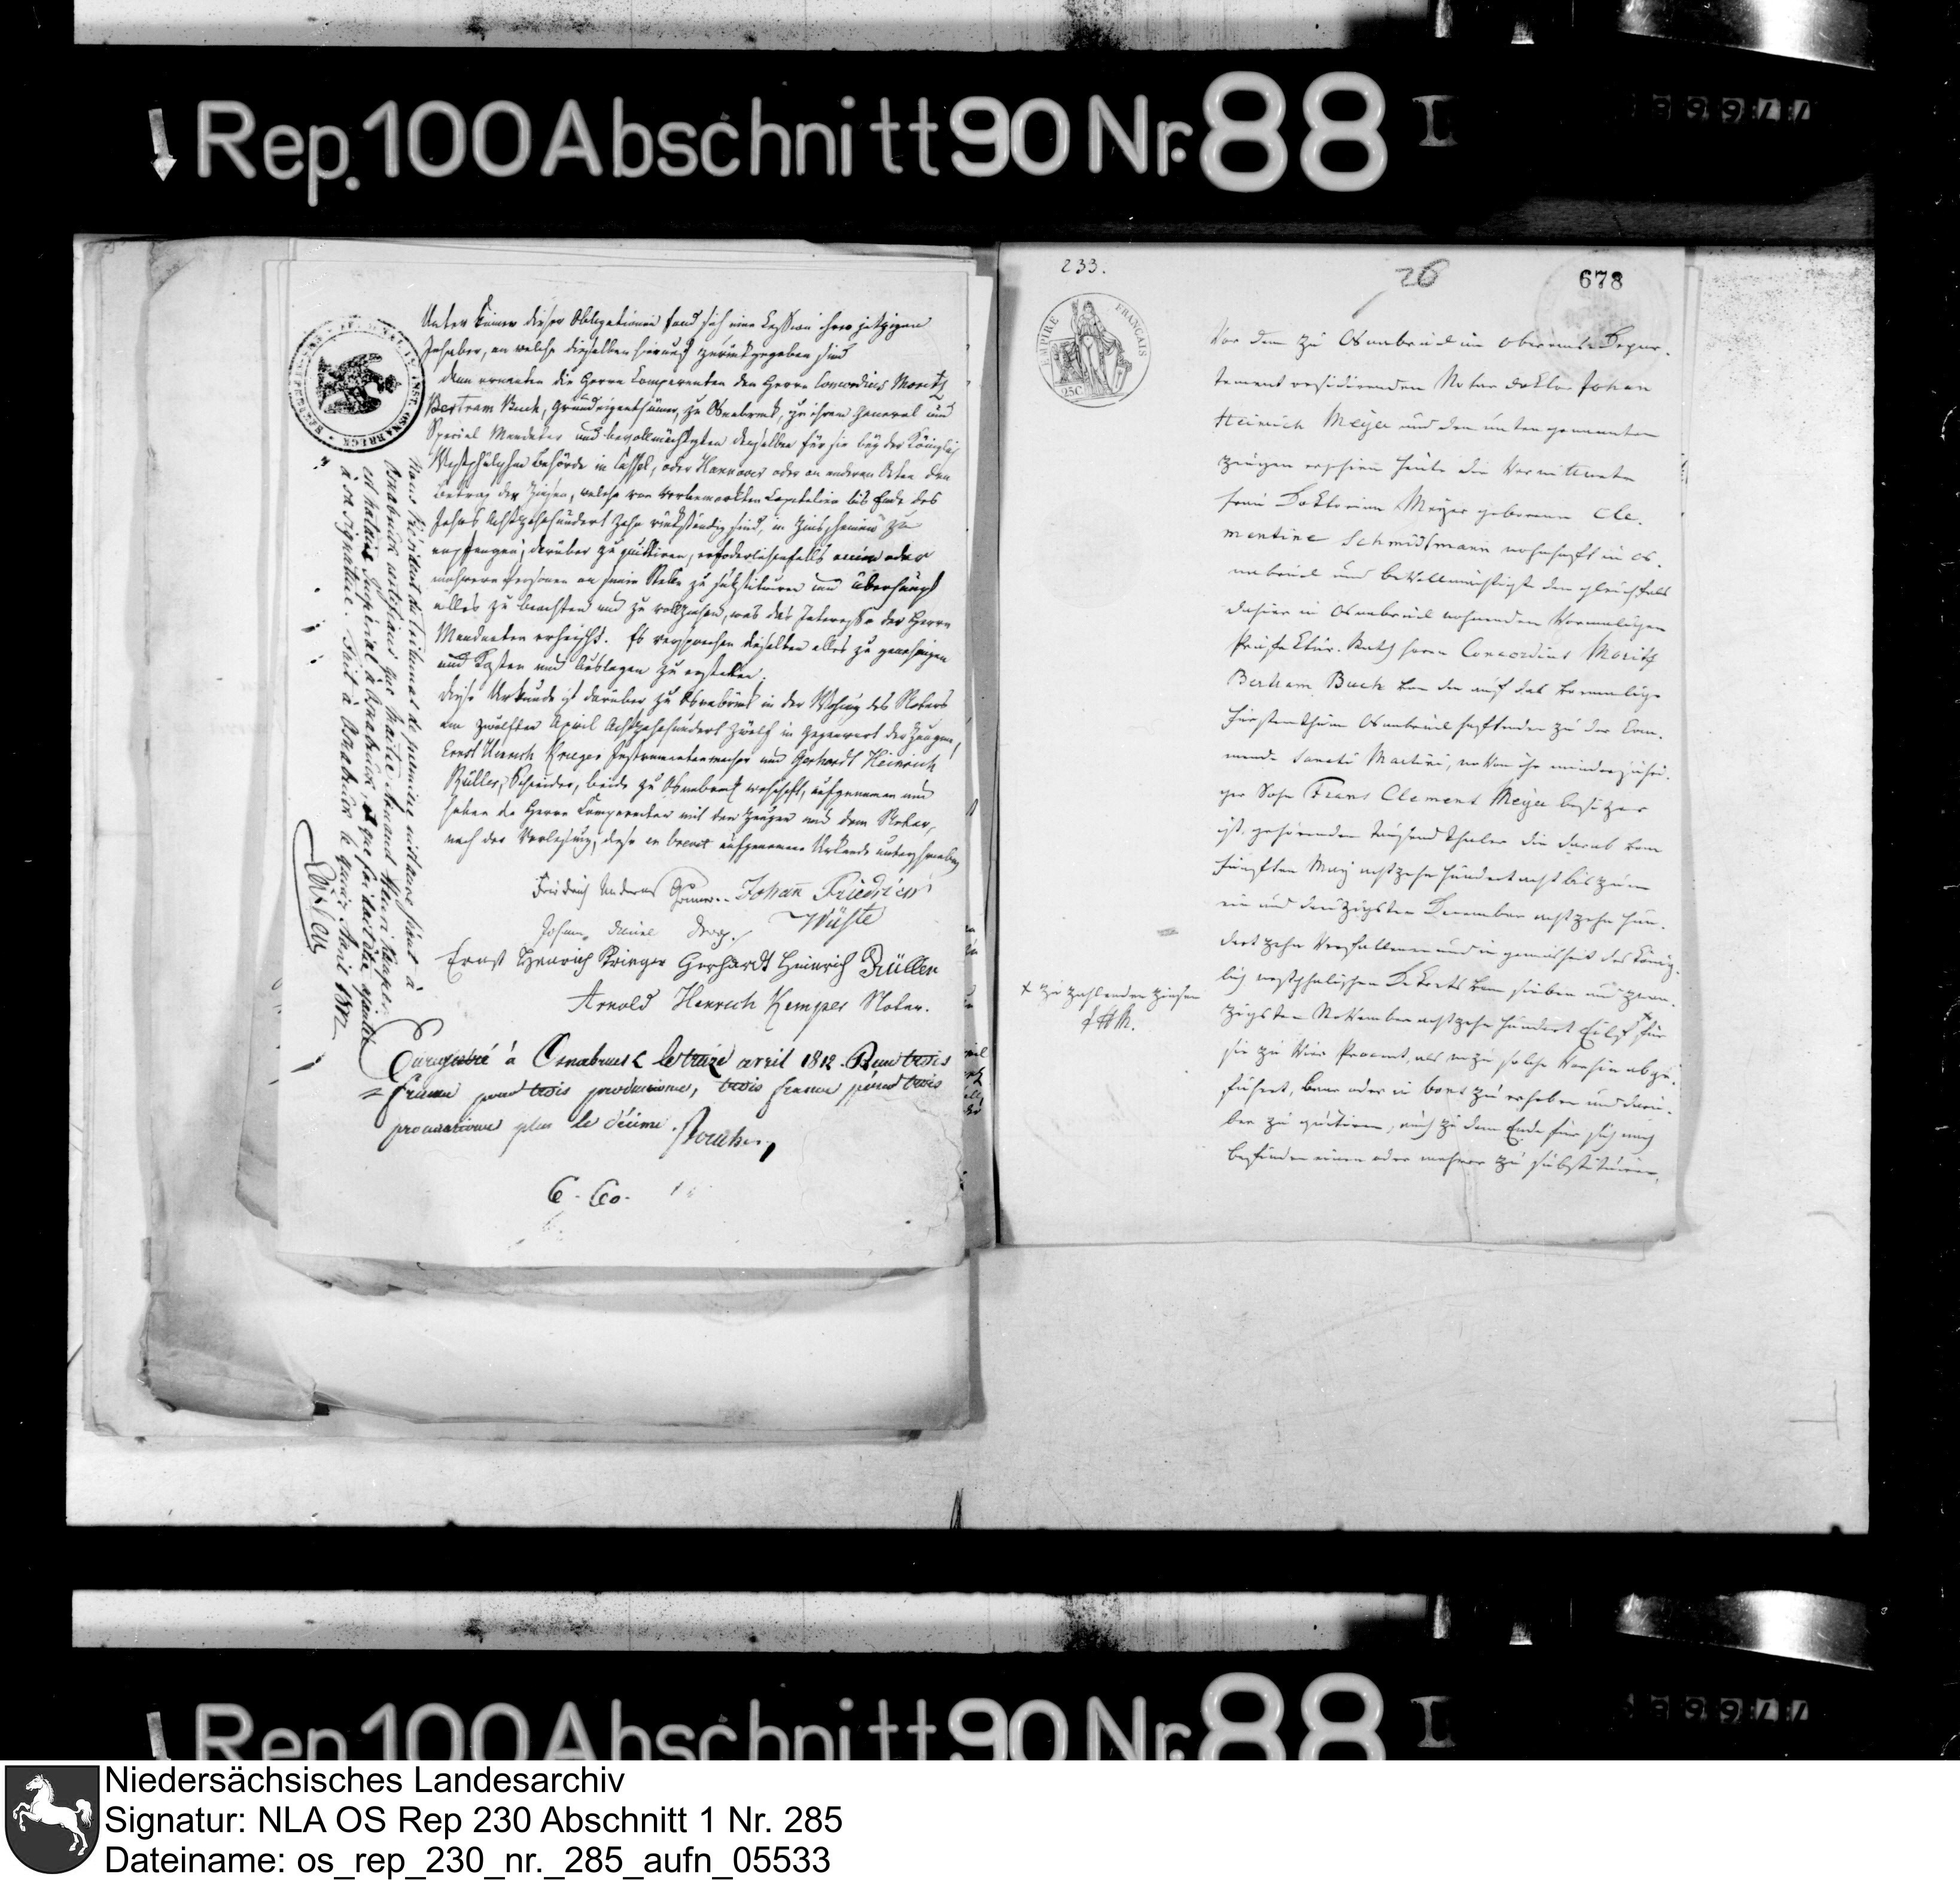 Rep. 100 Abschnitt 90 Nr. 88 I
Unter keiner dieser Obligationen fand sich eine Cession ihrer jetzigen
Inhaber, an welche dieselben hierauf zurückgegeben sind
dann ernenten die Herrn Comparenten den Herrn Concordius Moritz
Bertram Buch, Grundeigenthümer, zu Osnabrück, zu ihrem General und
Special Mandatar und bevollmächtigten denselben für sie bey der Königlich
Westphälischen Behörde in Cassel, oder Hannover oder an anderen Orten den
Betrag der Zinsen, welche von vorbemerkten Capitalien bis Ende des
Jahrs Achtzehnhundert Zehn rückständig sind, in Zinsscheinen zu
empfangen, darüber zu quittiren, erfoderlichenfalls einen oder
mehrere Personen an seine Stelle zu substituiren und überhaupt
alles zu beachten und zu vollziehen, was das Interesse der Herrn
Mandanten erheischt. Es versprechen dieselben alles zu genehmigen
und Kosten und Auslagen zu erstatten.
Diese Urkunde ist darüber zu Osnabrück in der Wohnung des Notars
am zwölften April Achtzehnhundert Zwölf in Gegenwart der Zeugen,
Ernst Henrich Krieger Instrumentenmacher und Gerhardt Heinrich
Rüller, Schneider, beide zu Osnabrück wohnhaft, aufgenommen und
haben die Herrn Comparenten mit den Zeugen und dem Notar,
nach der Vorlesung, diese en brevet aufgenommene Urkunde unterschrieben
Friedrich Andreas Johann Friedrich
Wüste
Johann Daniel
Ernst Henrich Krieger Gerhardt Heinrich Rüller
Arnold Henrich Kemper Notar.
Enregistré à Osnabruck le treize avril 1812. Reçu trois
francs pour trois procurations, trois francs pour trois
procurations plus le décime.
6.60.
Nous Président du tribunal de première instance séant à
Osnabruck certifions que Maître Arnaud Henri Kemper
est notaire Impérial à Osnabruck, et que foi doit être ajoutée
à sa signature. Fait à Osnabruck le quinze Avril 1812
233.
26
678
EMPIRE FRANÇAIS
25C
Vor dem zu Osnabrück im Oberems Depar-
tement residirenden Notar Doktor Johan
Heinrich Meyer und den unten genannten
Zeugen erschien heute die Verwittwete
Frau Doktorinn Meyer geborene Cle-
mentine Schmidtmann wohnhaft in Os-
nabrück und bevollmächtigt den gleichfals
dahier in Osnabrück wohnenden Vormaligen
Präfektur-Rath Herrn Concordius Moritz
Bertram Buch von den auf das vormalige
Fürstenthum Osnabrück haftenden zu der Com-
mende Sancti Martini, wovon ihr minderjähri-
ger Sohn Franz Clement Meyer besitzer
ist, gehörenden tausend Thaler die darab vom
fünften May achtzehn hundert acht bis zum
ein und dreizigsten December achtzehn hun-
dert zehn Verfallenen und in gemäsheit des König-
lich westphälischen Dekrets vom sieben und zwan-
zigsten November achtzehn hundert Eilf + für
sie zu Vier Procent, als wozu solche Vorhin abge-
führt, baar oder in bons zu erheben und darü-
ber zu quitiren, auch zu dem Ende für sich nach
befinden einen oder mehrere zu substituiren,
+ zu zahlenden Zinsen
JHM.
Rep. 100 Abschnitt 90 Nr. 88 I
Niedersächsisches Landesarchiv
Signatur: NLA OS Rep 230 Abschnitt 1 Nr. 285
Dateiname: os_rep_230_nr._285_aufn_05533